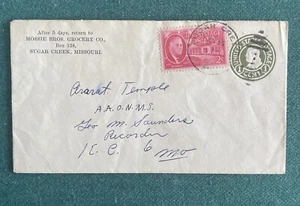 After 5 days, return to
MOSSIE BROS. GROCERY CO.,
Box 124,
SUGAR CREEK, MISSOURI.
Ararat Temple
A.A.O.N.M.S.
Geo M. Saunders
Recorder
K.C. 6 Mo